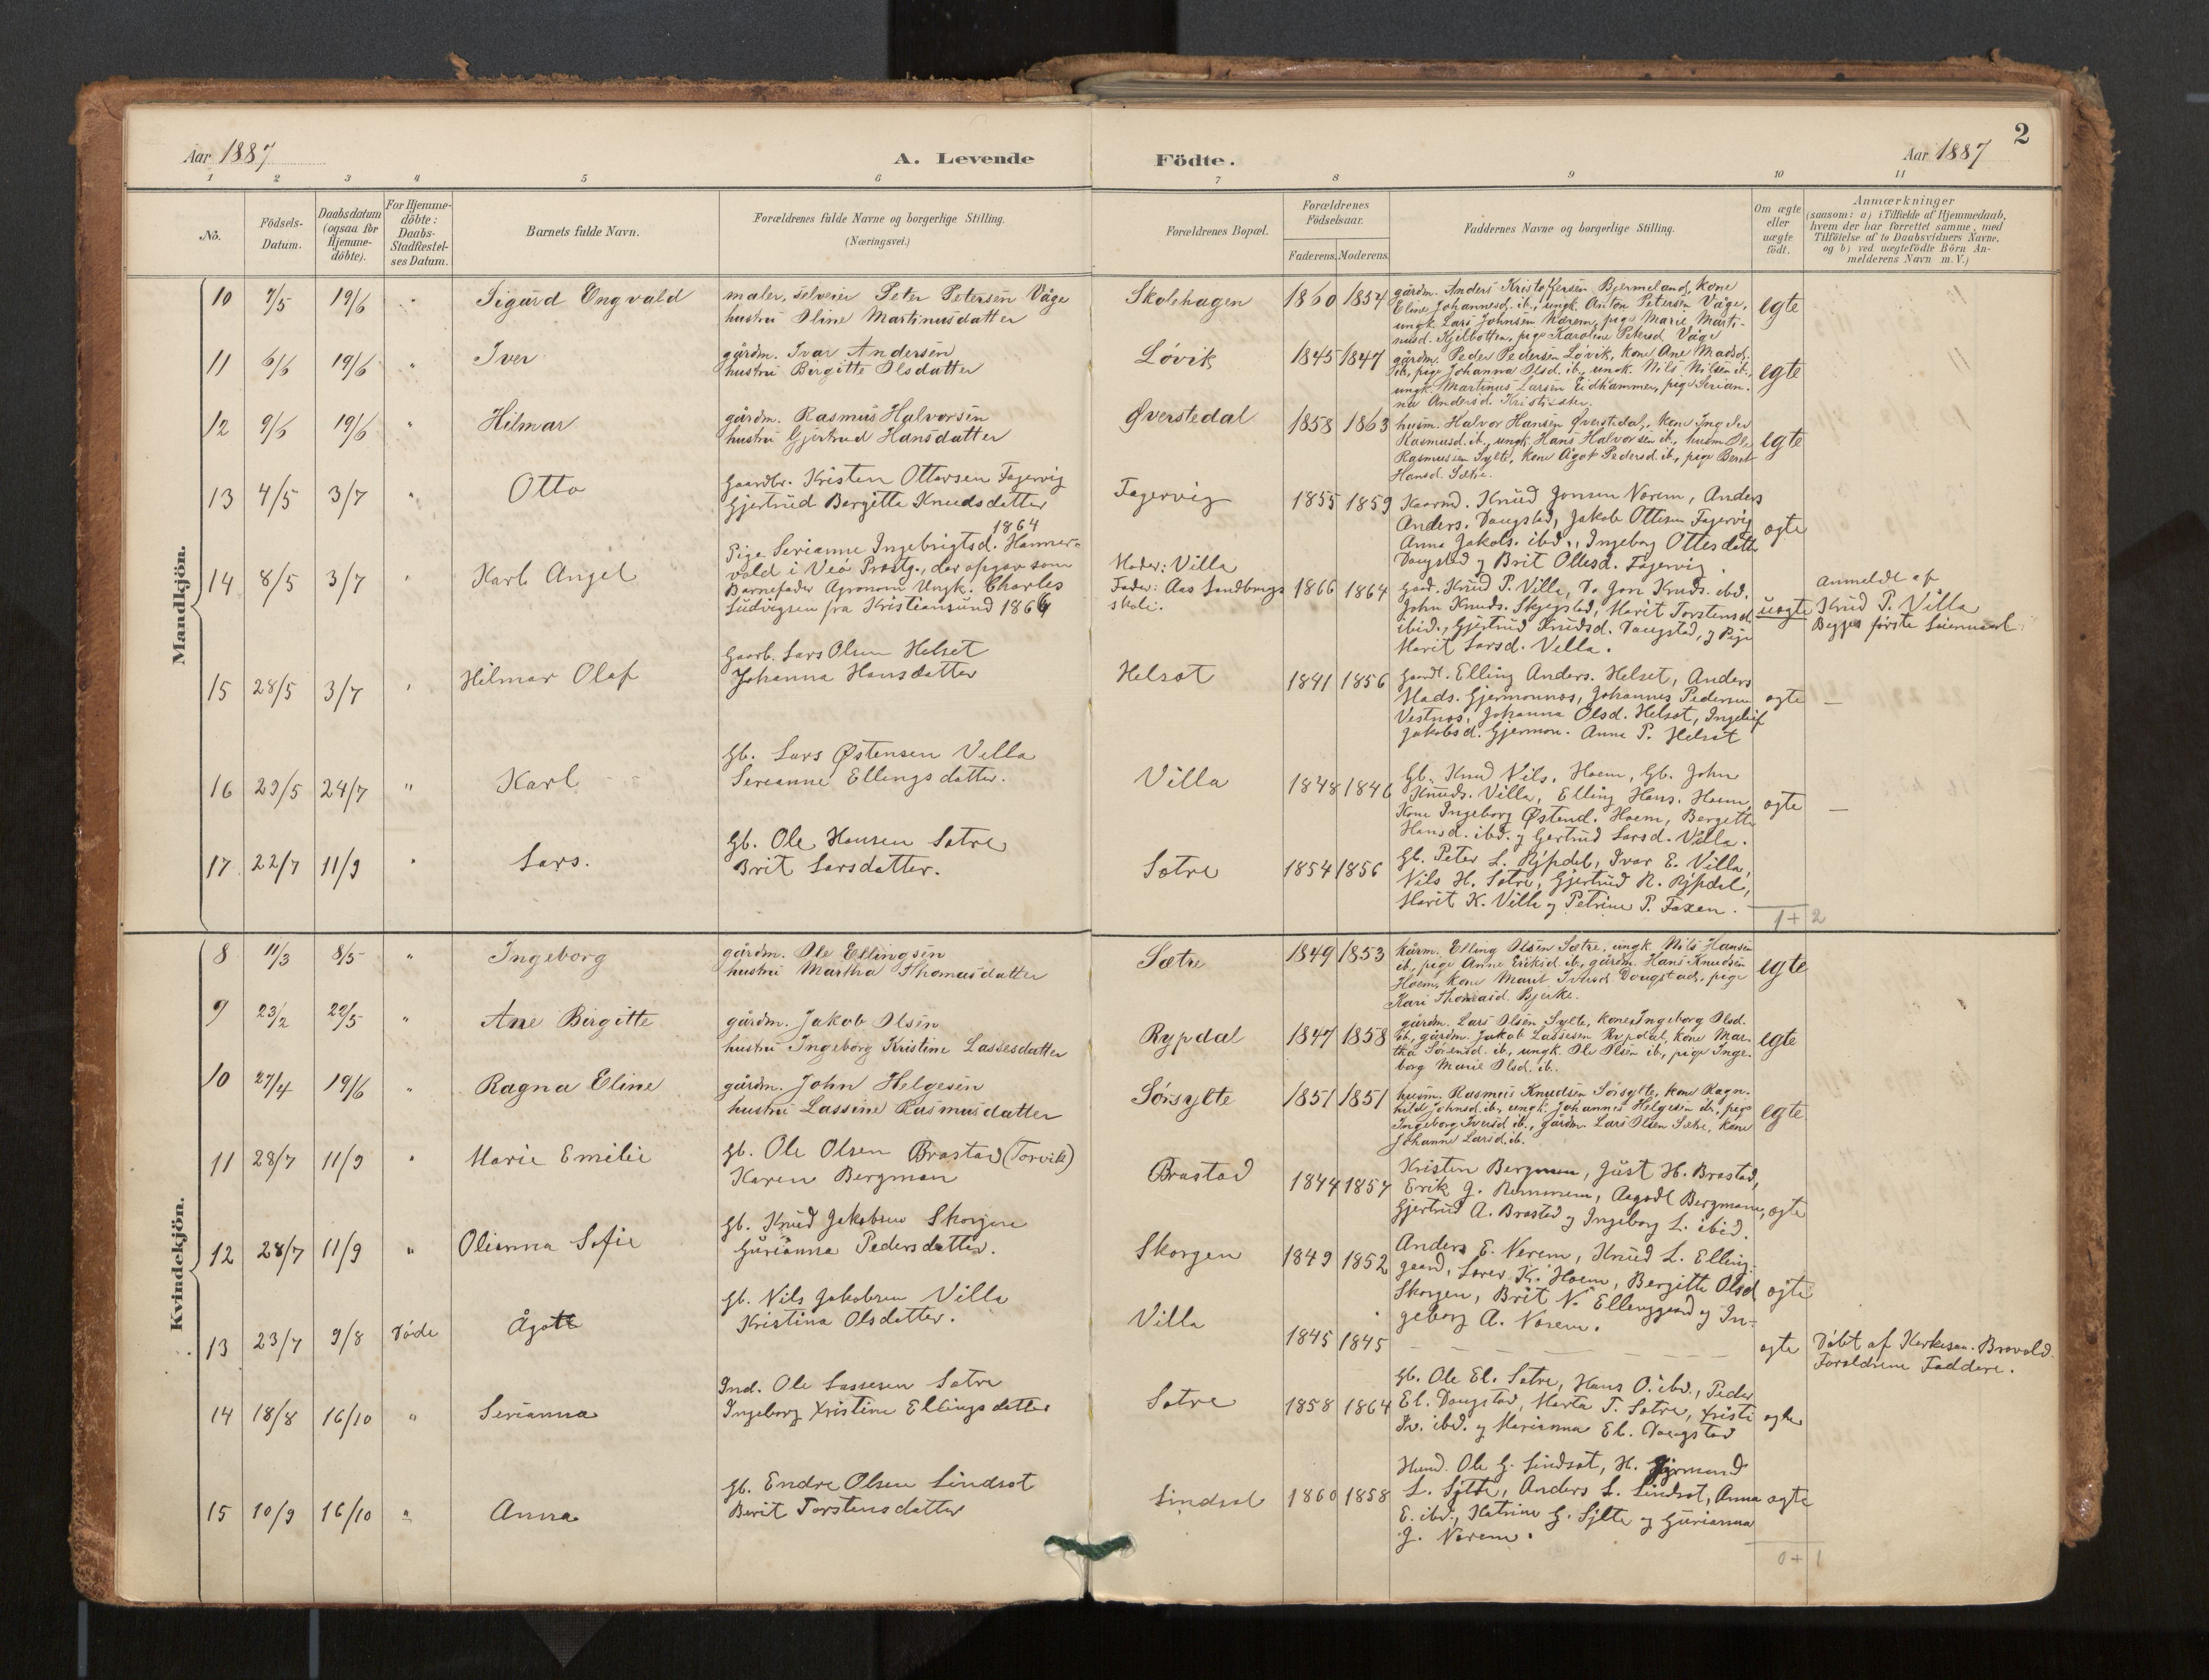 2
Aar 1887
A. Levende
Födte.
Aar 1887
1 2 3 4 5 6 7 8 9 10 11
No.
Födsels-
Datum.
Daabsdatum
(ogsaa for
Hjemme-
döbte).
For Hjemme-
döbte:
Daabs-
Stadfæstel-
ses Datum.
Barnets fulde Navn.
Forældrenes fulde Navne og borgerlige Stilling.
(Næringsvei.)
Forældrenes Bopæl.
Forældrenes
Födselsaar.
Faderens. Moderens.
Faddernes Navne og borgerlige Stilling.
Om ægte
eller
uægte
födt.
Anmærkninger
(saasom: a) i Tilfælde af Hjemmedaab,
hvem der har forrettet samme, med
Tilföielse af to Daabsvidners Navne,
og b) ved uægtefödte Börn An-
melderens Navn m. V.)
Mandkjön.
10 7/5 19/6 " Sigurd Engvald
maler, selveier Peter Petersen Våge
hustru Oline Martinusdatter
Skolehagen 1860 1854
gårdm. Anders Kristoffersen Bjermeland, kone
Eline Johannesd. ib., ungk. Anton Petersen Våge,
ungk. Lars Johnsen Nærem, pige Marie Marti-
nusd. Kjelbotten, pige Karoline Petersd. Våge
egte
11 6/6 19/6 " Iver
gårdm. Ivar Andersen
hustru Birgitte Olsdatter
Løvik 1845 1847
gårdm. Peder Pedersen Løvik, kone Ane Madsd.
ib., pige Johanna Olsd. ib., ungk. Nils Nilsen ib.,
ungk. Martinus Larsen Eidhammer, pige Serian-
na Andersd.
egte
12 9/6 19/6 " Hilmar
gårdm. Rasmus Halvorsen
hustru Gjertrud Hansdatter
Øverstedal 1858 1863
husm. Halvor Hansen Øverstedal, kone Ingeber
Rasmusd. ib., ungk. Hans Halvorsen ib., husm. Ole
Rasmussen Sylte, kone Ågot Pedersd. ib., pige Beret
Hansd. Sætre.
egte
13 4/5 3/7 " Otto
Gaardbr. Kristen Ottersen Fagervig
Gjertrud Bergitta Knudsdatter
Fagervig 1855 1859
Knud Jonsen Norem, Anders
Anders. Daugstad, Jakob Ottesen Fagervig
Anna Jakobs. ibd., Ingeborg Ottesdatter
Daugstad og Brit Ottesd. Fagervig.
ægte
14 8/5 3/7 " Karl Angel
1864
Pige Serianne Ingebrigtsd. Hammer-
vold i Veø Prestg., der opgav som
Barnefader Agronom Ungk. Charles
Ludvigsen fra Kristiansund 1866
Moder: Villa
Fader: Aas Landbrugs
skole.
1866 1864
Gaard. Knud P. Villa, Do Jon Knuds. ibd.
John Knuds. Skjegstad, Marit Torstensd.
ibid., Gjertrud Knudsd. Daugstad, og Pige
Marit Larsd. Villa.
uægte
Anmeldt af
Knud P. Villa
Begges første Leiermaal
15 28/5 3/7 " Hilmar Olaf
Gaarb. Lars Olsen Helset
Johanna Hansdatter
Helset 1841 1856
Gaardb. Elling Anders. Helset, Anders
Mads. Gjermundnes, Johannes Pedersen
Vestnes, Johanna Olsd. Helset, Ingeleif
Jakobsd. Gjermun. Anna P. Helset
ægte —
16 29/5 24/7 " Karl
Gb. Lars Østensen Villa
Serianne Ellingsdatter.
Villa 1848 1846
Gb. Knud Nils. Hoem, Gb. John
Knuds. Villa, Elling Hans. Hoem,
Kone Ingeborg Østend. Hoem, Bergitte
Hansd. ibd. og Gertrud Larsd. Villa.
ægte —
17 22/7 11/9 " Lars.
Gb. Ole Hansen Sætre
Brit Larsdatter.
Sætre 1854 1856
Gb. Peter L. Rypdal, Ivar E. Villa,
Nils H. Sætre, Gjertrud R. Rypdal,
Marit K. Villa og Petrine P. Faxen.
1 + 2
Kvindekjön.
8 11/3 8/5 " Ingeborg
gårdm. Ole Ellingsen
hustru Martha Thomasdatter
Sætre 1849 1853
kårm. Elling Olsen Sætre, ungk. Nils Hansen
ib., pige Anne Eriksd. ib., gårdm. Hans Knudsen
Hoem, kone Marit Iversd. Dougstad, pige
Kari Thomasd. Bjerke.
egte
9 23/2 22/5 " Ane Birgitte
gårdm. Jakob Olsen
hustru Ingeborg Kristine Lassesdatter
Rypdal 1847 1858
gårdm. Lars Olsen Sylte, kone Ingeborg Olsd.
ib., gårdm. Jakob Lassesen Rypdal, kone Mar-
tha Sørensd. ib., ungk. Ole Olsen ib., pige Inge-
borg Marie Olsd. ib.
egte
10 27/4 19/6 " Ragna Eline
gårdm. John Helgesen
hustru Lassine Rasmusdatter
Sørsylte 1851 1851
husm. Rasmus Knudsen Sørsylte, kone Ragn-
hild Johnsd. ib., ungk. Johannes Helgesen do., pige
Ingeborg Iversd. ib., gårdm. Lars Olsen Sætre, kone
Johanne Larsd. ib.
egte
11 28/7 11/9 " Marie Emilie
Gb. Ole Olsen Brastad (Torvik)
Karen Bergman
Brastad 1844 1857
Kristen Bergman, Just H. Brastad,
Erik J. Remmem, Aagodt Bergmann,
Gjertrud A. Brastad og Ingeborg L. ibid.
ægte
12 28/7 11/9 " Olianna Sofie
Gb. Knud Jakobsen Skorgen
Gurianna Pedersdatter.
Skorgen 1849 1852
Anders E. Nerem, Knud L. Elling-
gaard, K. Hoem, Bergitte Olsd
Skorgen, Brit N. Ellinggaard og In-
geborg A. Norem.
ægte
13 23/7 9/8 Døde Ågott
Gb. Nils Jakobsen Villa
Kristina Olsdatter.
Villa 1845 1845
— — — — — —
ægte
Døbt af Kirkesan. Brovold.
Forældrene Faddere.
14 18/8 16/10 " Serianna
Ind. Ole Lassesen Sætre
Ingeborg Kristine Ellingsdatter
Sætre 1858 1864
Gb. Ole El. Sætre, Hans O. ibd., Peder
El. Daugstad, Marta T. Sætre, Kristi
Iv. ibd. og Marianna El. Daugstad
ægte
15 10/9 16/10 " Anna
Gb. Endre Olsen Lindset
Berit Torstensdatter
Lindset 1860 1858
Ole G. Lindset, H. Gjermund
L. Sylte, Anders L. Lindset, Anna
E. ibd., Katrine G. Sylte og Gurianna
J. Norem.
ægte
0 + 1